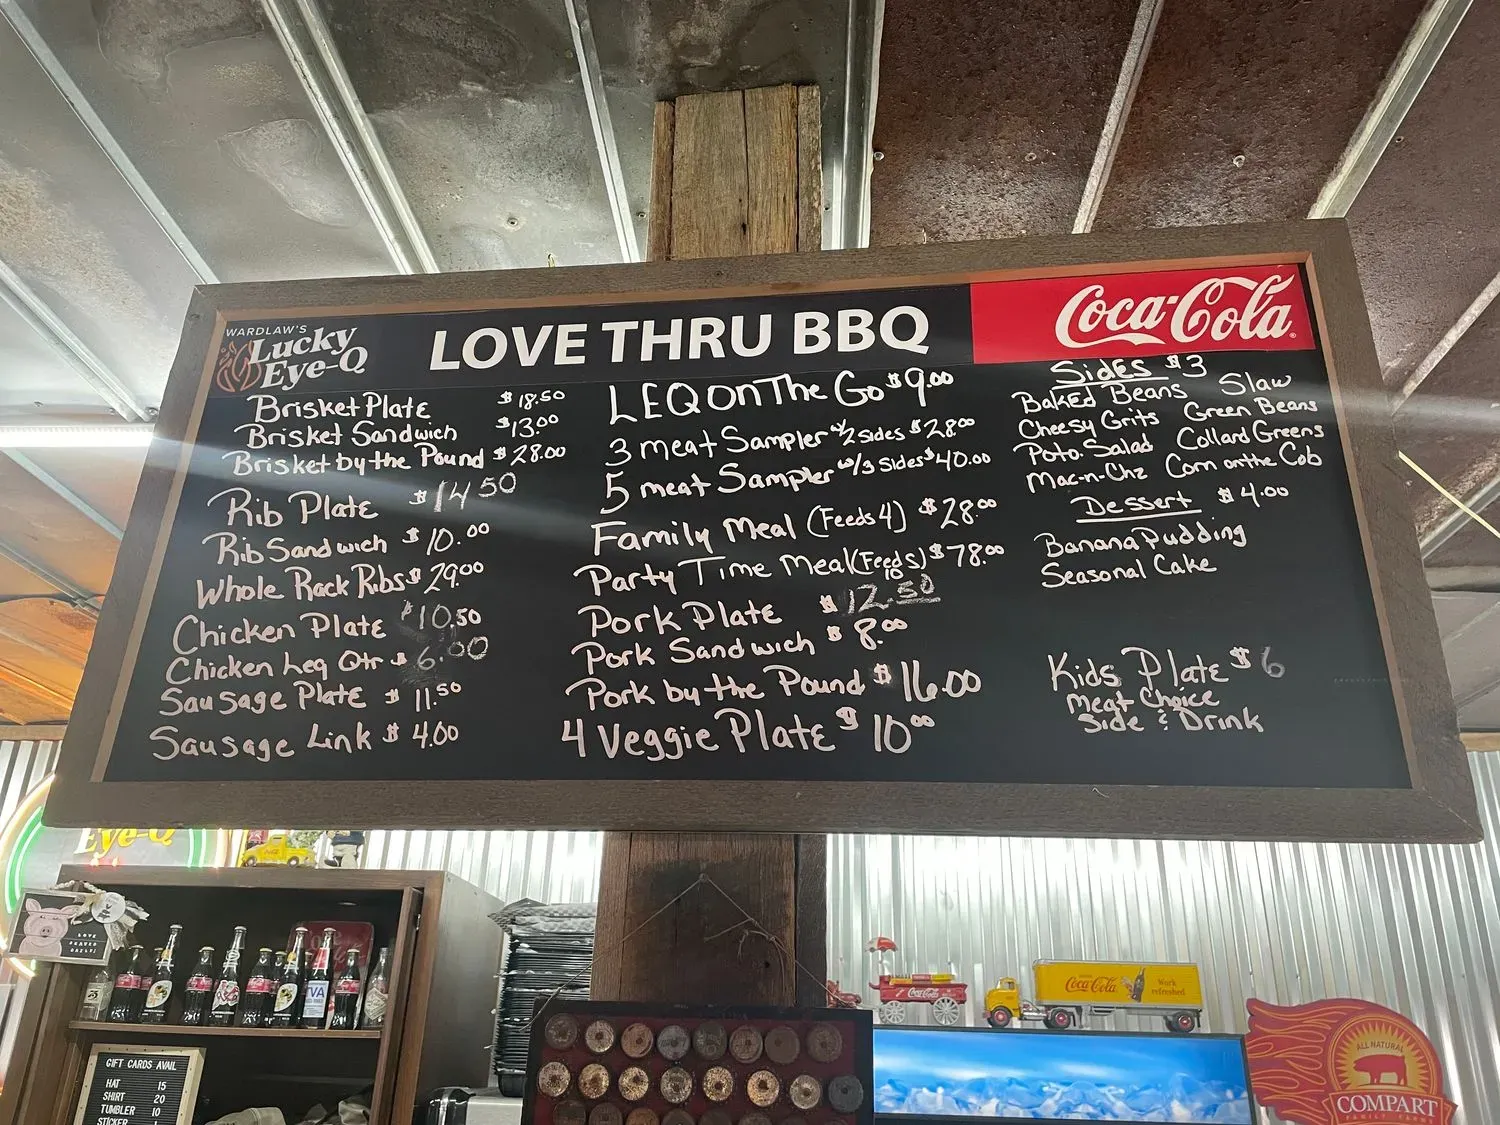 WARDLAW'S
Lucky
Eye-Q
LOVE THRU BBQ
Coca-Cola
Brisket Plate $18.50
Brisket Sandwich $13.00
Brisket by the Pound $28.00
Rib Plate $14.50
Rib Sandwich $10.00
Whole Rack Ribs $29.00
Chicken Plate $10.50
Chicken Leg Qtr $6.00
Sausage Plate $11.50
Sausage Link $4.00
LEQ on The Go $9.00
3 meat Sampler w/2 Sides $28.00
5 meat Sampler w/3 Sides $40.00
Family Meal (Feeds 4) $28.00
Party Time Meal (Feeds 10) $78.00
Pork Plate $12.50
Pork Sandwich $8.00
Pork by the Pound $16.00
4 Veggie Plate $10.00
Sides $3
Baked Beans Slaw
Cheesy Grits Green Beans
Poto. Salad Collard Greens
Mac-n-Chz Corn on the Cob
Dessert $4.00
Banana Pudding
Seasonal Cake
Kids Plate $6
Meat Choice
Side & Drink
Eye-Q
LOVE
GIFT CARDS AVAIL
HAT 15
SHIRT 20
TUMBLER 10
STICKER
TVA
Coca-Cola
Coca-Cola
Work
refreshed
ALL NATURAL
COMPART
FAMILY FARMS